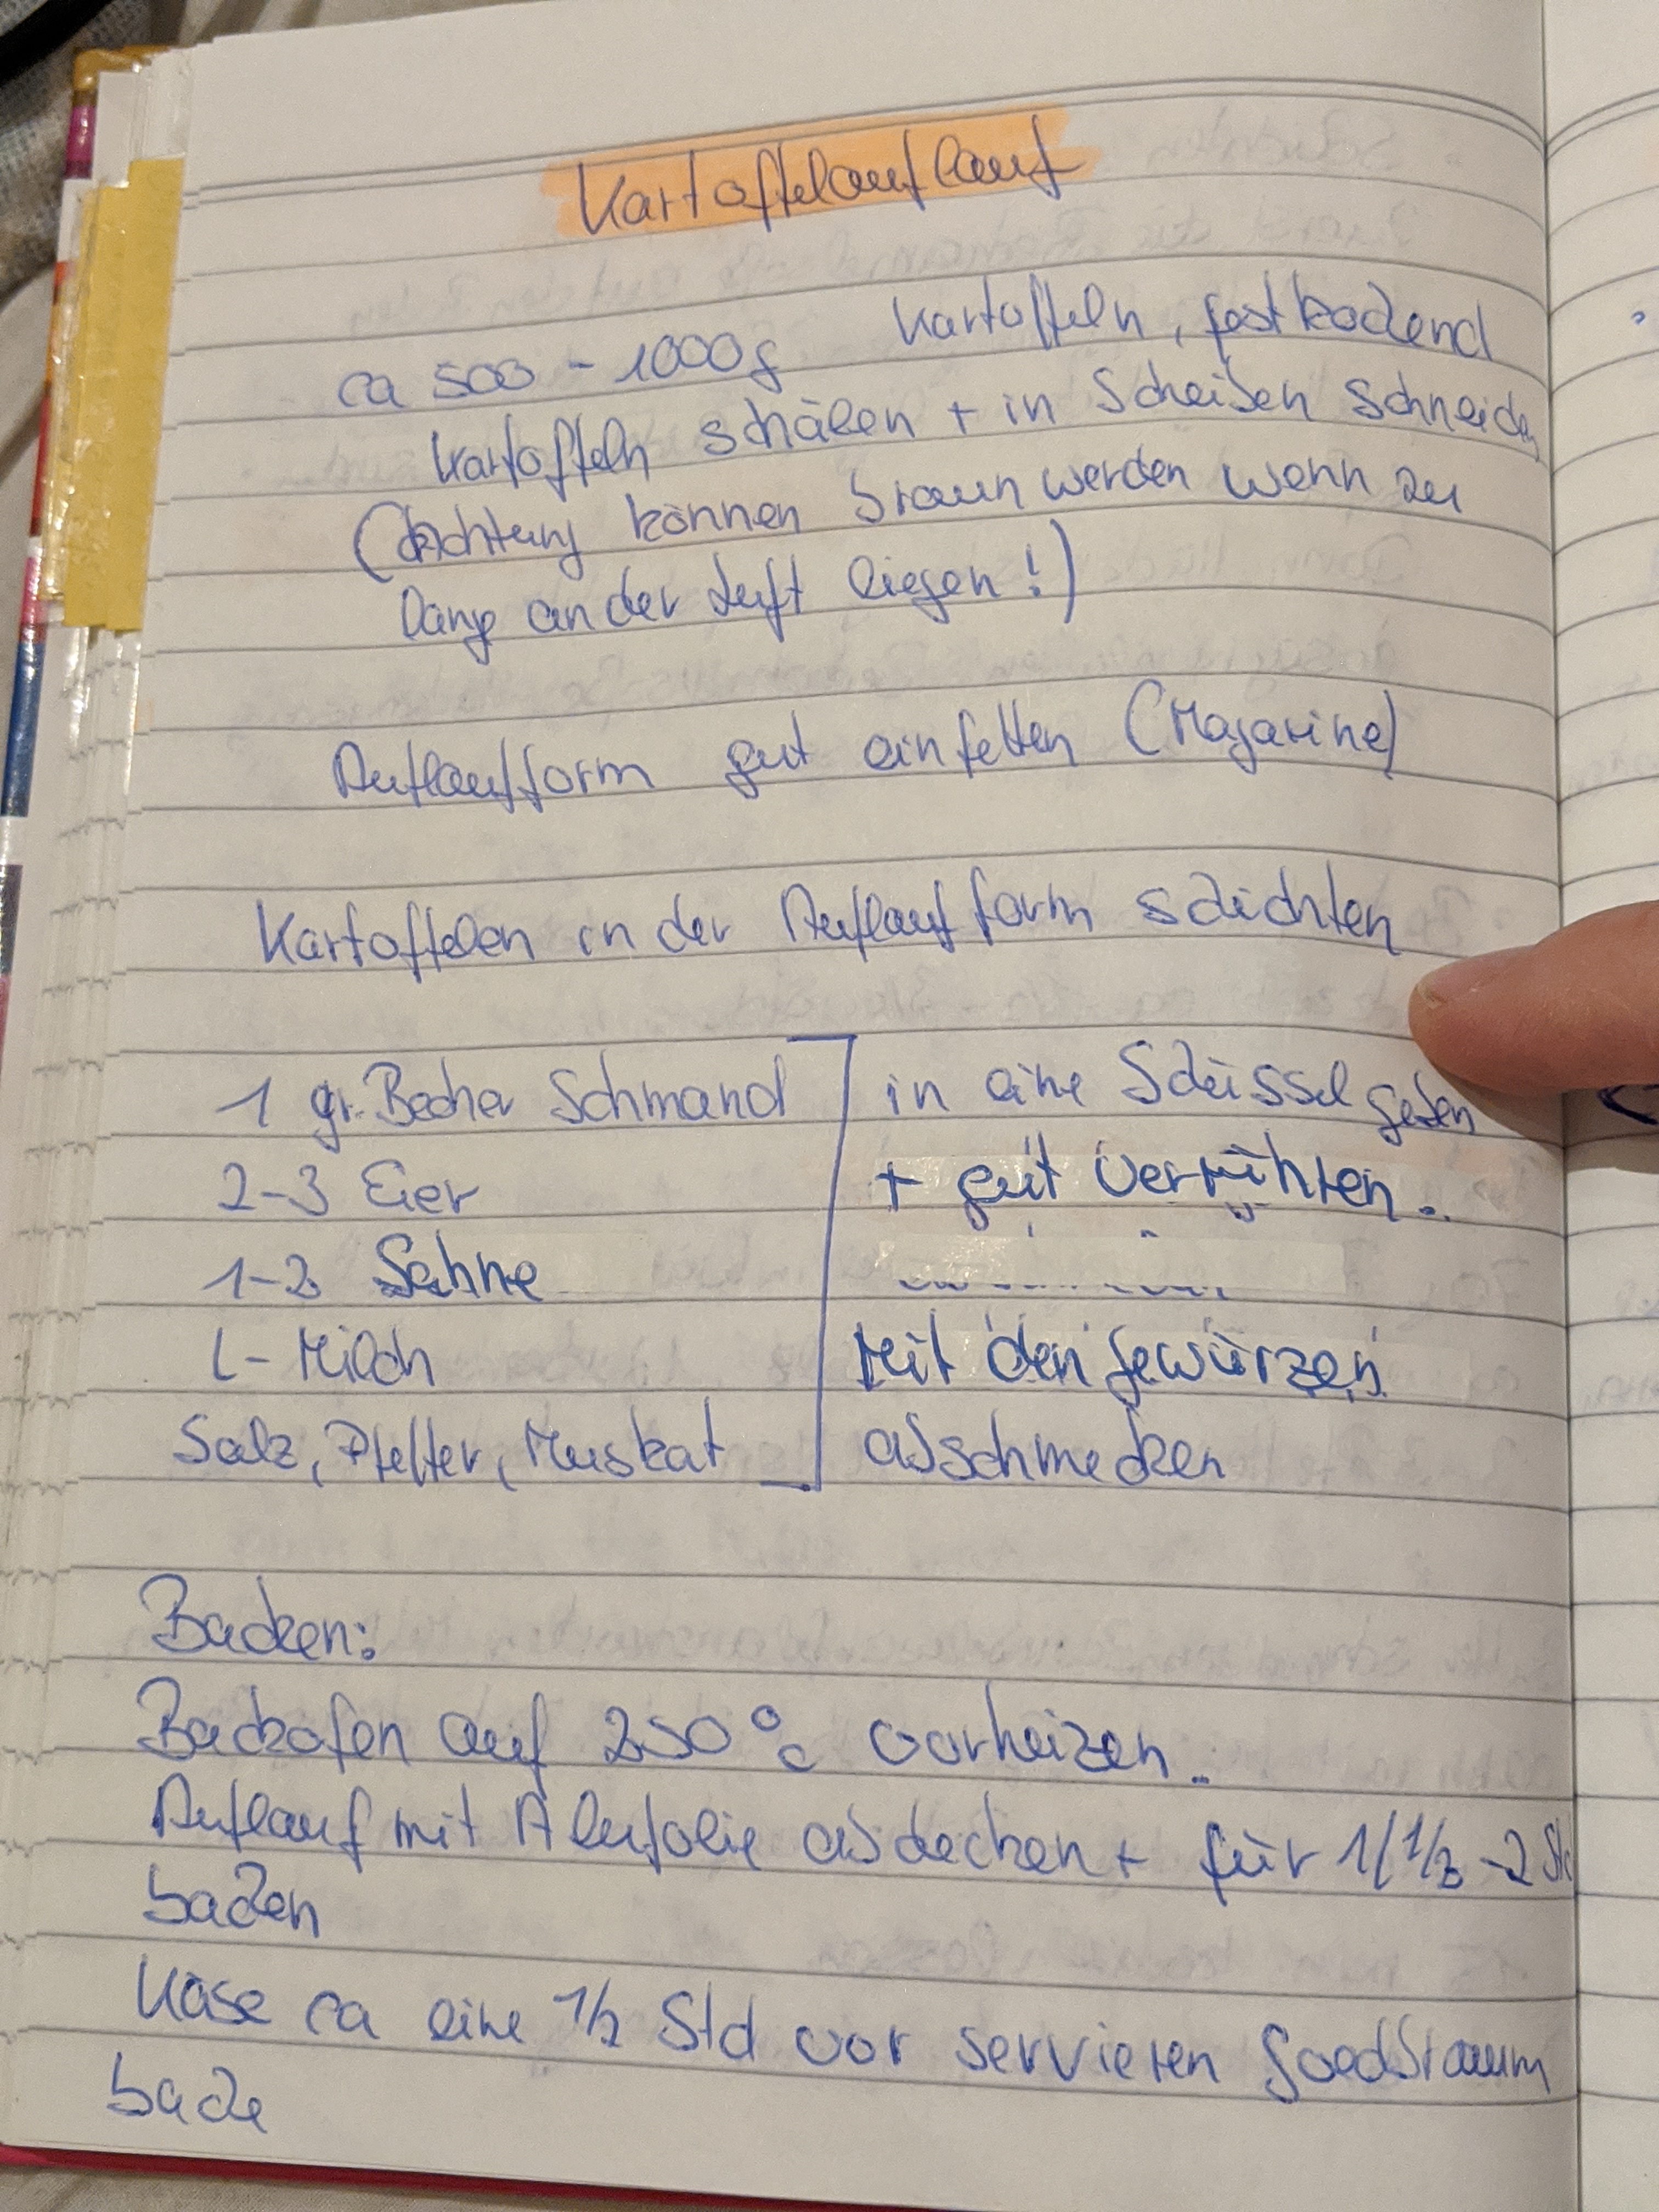 Kartoffelauflauf
ca 500 - 1000g Kartoffeln, festkochend
Kartoffeln schälen + in Scheiben schneiden
(Achtung können braun werden wenn zu
lang an der Luft liegen!)
Auflaufform gut einfetten (Magarine)
Kartoffelen in der Auflaufform schichten
1 gr. Becher Schmand in eine Schüssel geben
2-3 Eier + gut verrühren.
1-2 Sahne
L- Milch Mit den Gewürzen
Salz, Pfeffer, Muskat abschmecken
Backen:
Backofen auf 250°C vorheizen.
Auflauf mit Alufolie abdecken + für 1 1/2 - 2 Std
backen
Käse ca eine 1/2 Std vor servieren goldbraun
backe